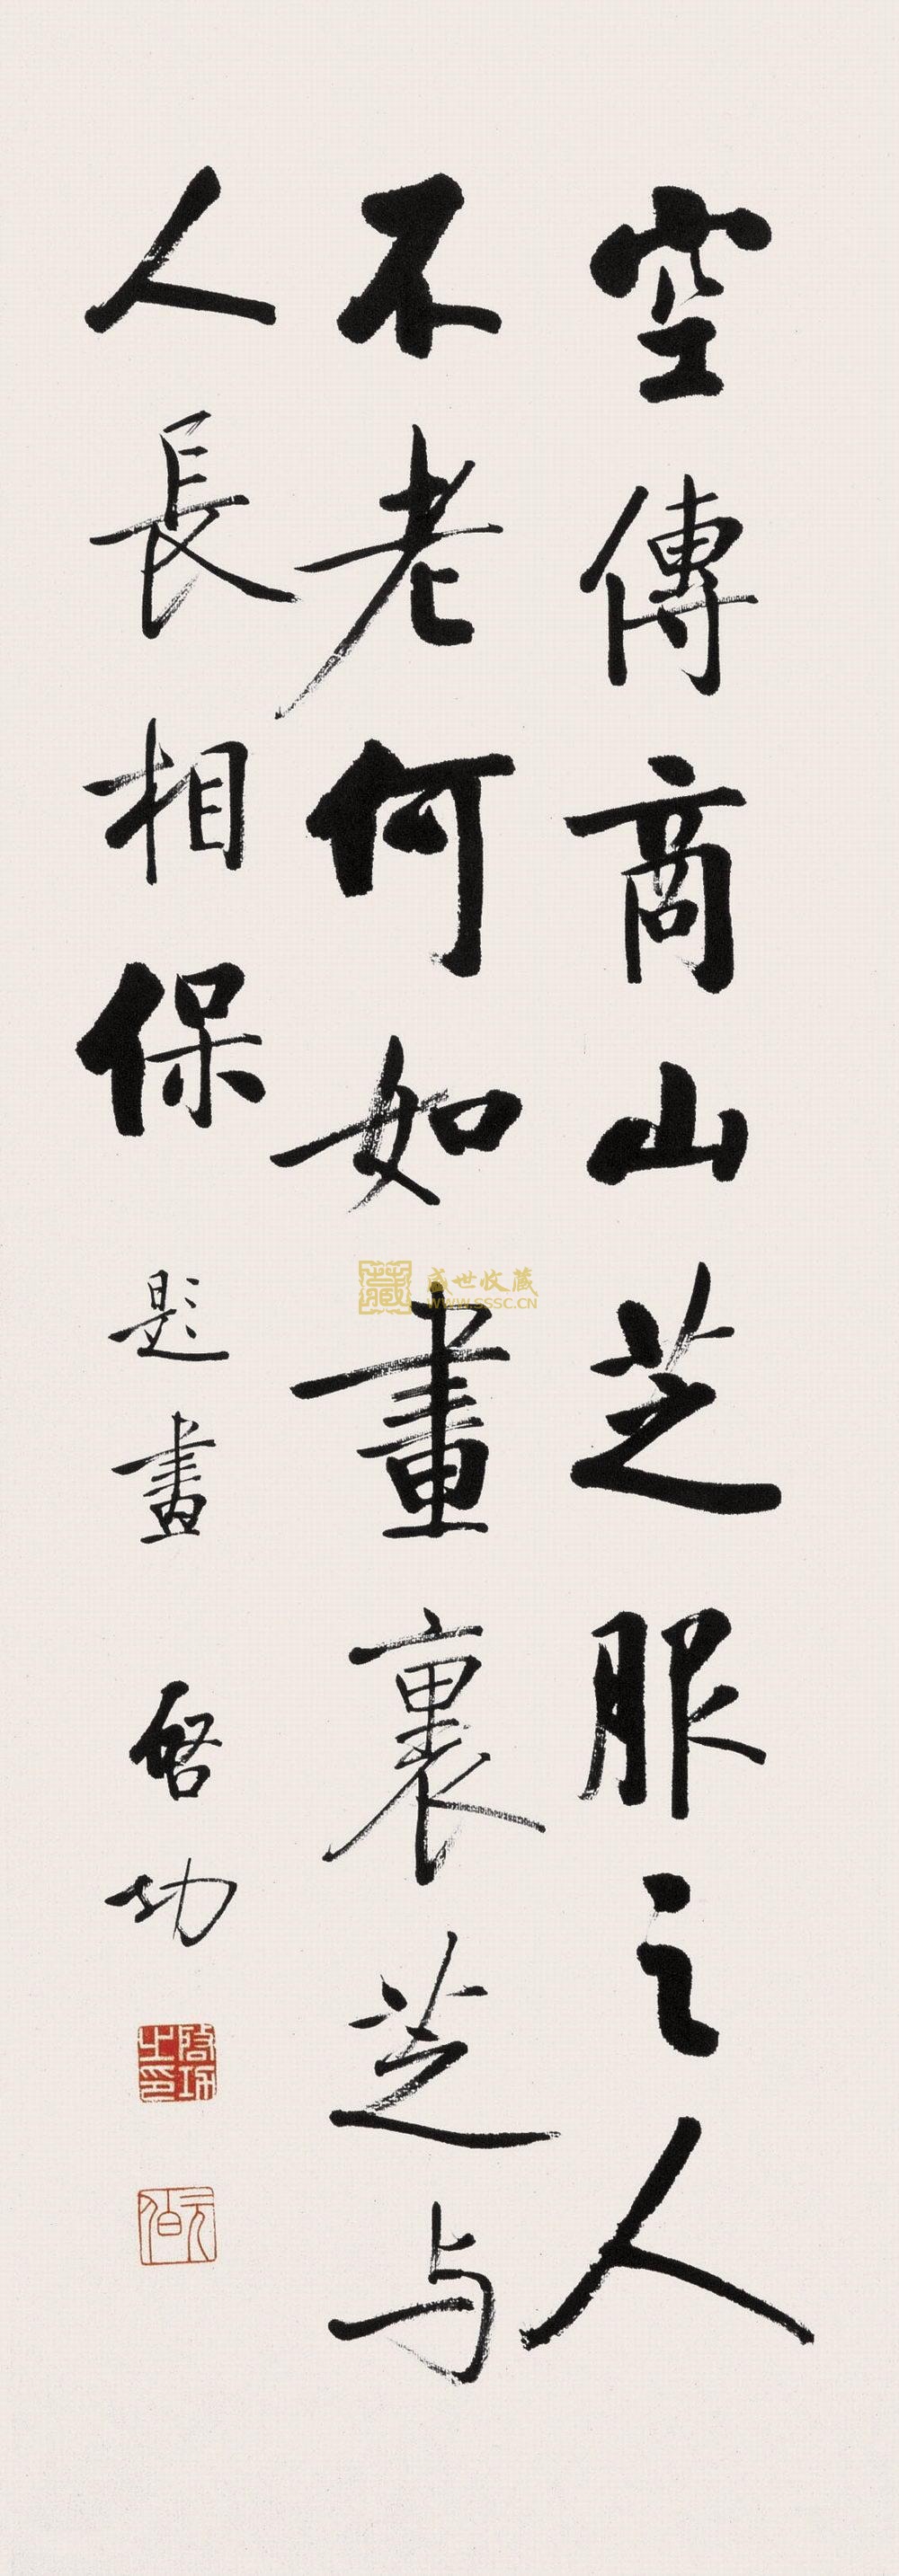 空傳商山芝服之人
不老何如畫裏芝与
人長相保
題畫 啓功
啓功之印
元伯
藏
盛世收藏
WWW.SSSC.CN